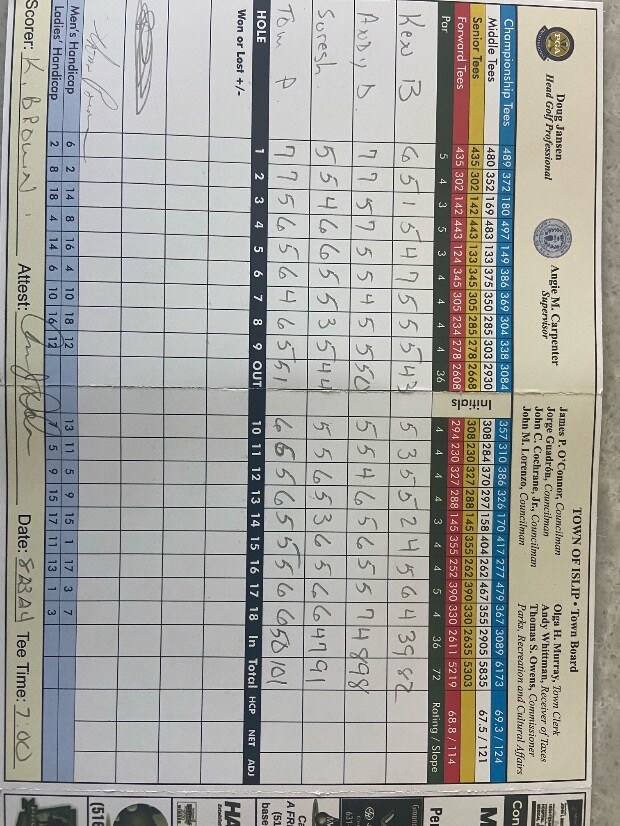 PGA
Doug Jansen
Head Golf Professional
Angie M. Carpenter
Supervisor
TOWN OF ISLIP • Town Board
James P. O'Connor, Councilman
Jorge Guadrón, Councilman
John C. Cochrane, Jr., Councilman
John M. Lorenzo, Councilman
Olga H. Murray, Town Clerk
Andy Whittman, Receiver of Taxes
Thomas S. Owens, Commissioner
Parks, Recreation and Cultural Affairs
Championship Tees 489 372 180 497 149 386 369 304 338 3084 357 310 386 326 170 417 277 479 367 3089 6173 69.3 / 124
Middle Tees 480 352 169 483 133 375 350 285 303 2930 Initials 308 284 370 297 158 404 262 467 355 2905 5835 67.5 / 121
Senior Tees 435 302 142 443 133 345 305 285 278 2668 308 230 327 288 145 355 262 390 330 2635 5303
Forward Tees 435 302 142 443 124 345 305 234 278 2608 294 230 327 288 145 355 252 390 330 2611 5219 68.8 / 114
Par 5 4 3 5 3 4 4 4 4 36 4 4 4 4 3 4 4 5 4 36 72 Rating / Slope
Ken B 6 5 1 5 4 7 5 5 5 43 5 3 5 5 2 4 5 6 4 39 82
Andy D. 7 7 5 7 5 5 4 5 5 50 5 5 4 6 5 6 5 5 7 48 98
Suresh 5 5 4 6 6 5 5 3 5 44 5 5 6 5 3 6 5 6 6 47 91
Tom P. 7 7 5 6 5 6 4 6 5 51 6 6 5 6 5 5 5 6 6 50 101
HOLE 1 2 3 4 5 6 7 8 9 OUT 10 11 12 13 14 15 16 17 18 In Total HCP NET ADJ
Won or Lost +/-
Men's Handicap 6 2 14 8 16 4 10 18 12 13 11 5 9 15 1 17 3 7
Ladies' Handicap 2 8 18 4 14 6 10 16 12 7 5 9 15 17 11 13 1 3
Scorer: K. BROWN. Attest: Date: 8/23/24 Tee Time: 7:00